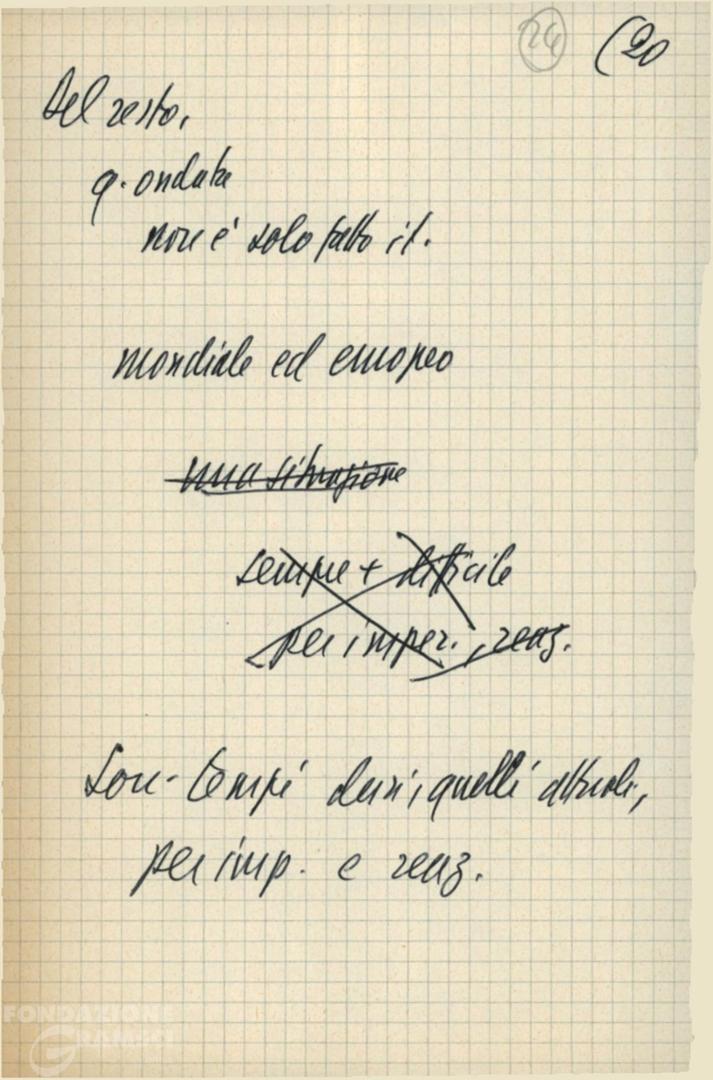 24 (20
Del resto,
q. ondata
non è solo fatto it.
mondiale ed europeo
una situazione
sempre + difficile
per imper., reaz.
Son tempi duri, quelli attuali,
per imp. e reaz.
FONDAZIONE
GRAMSCI